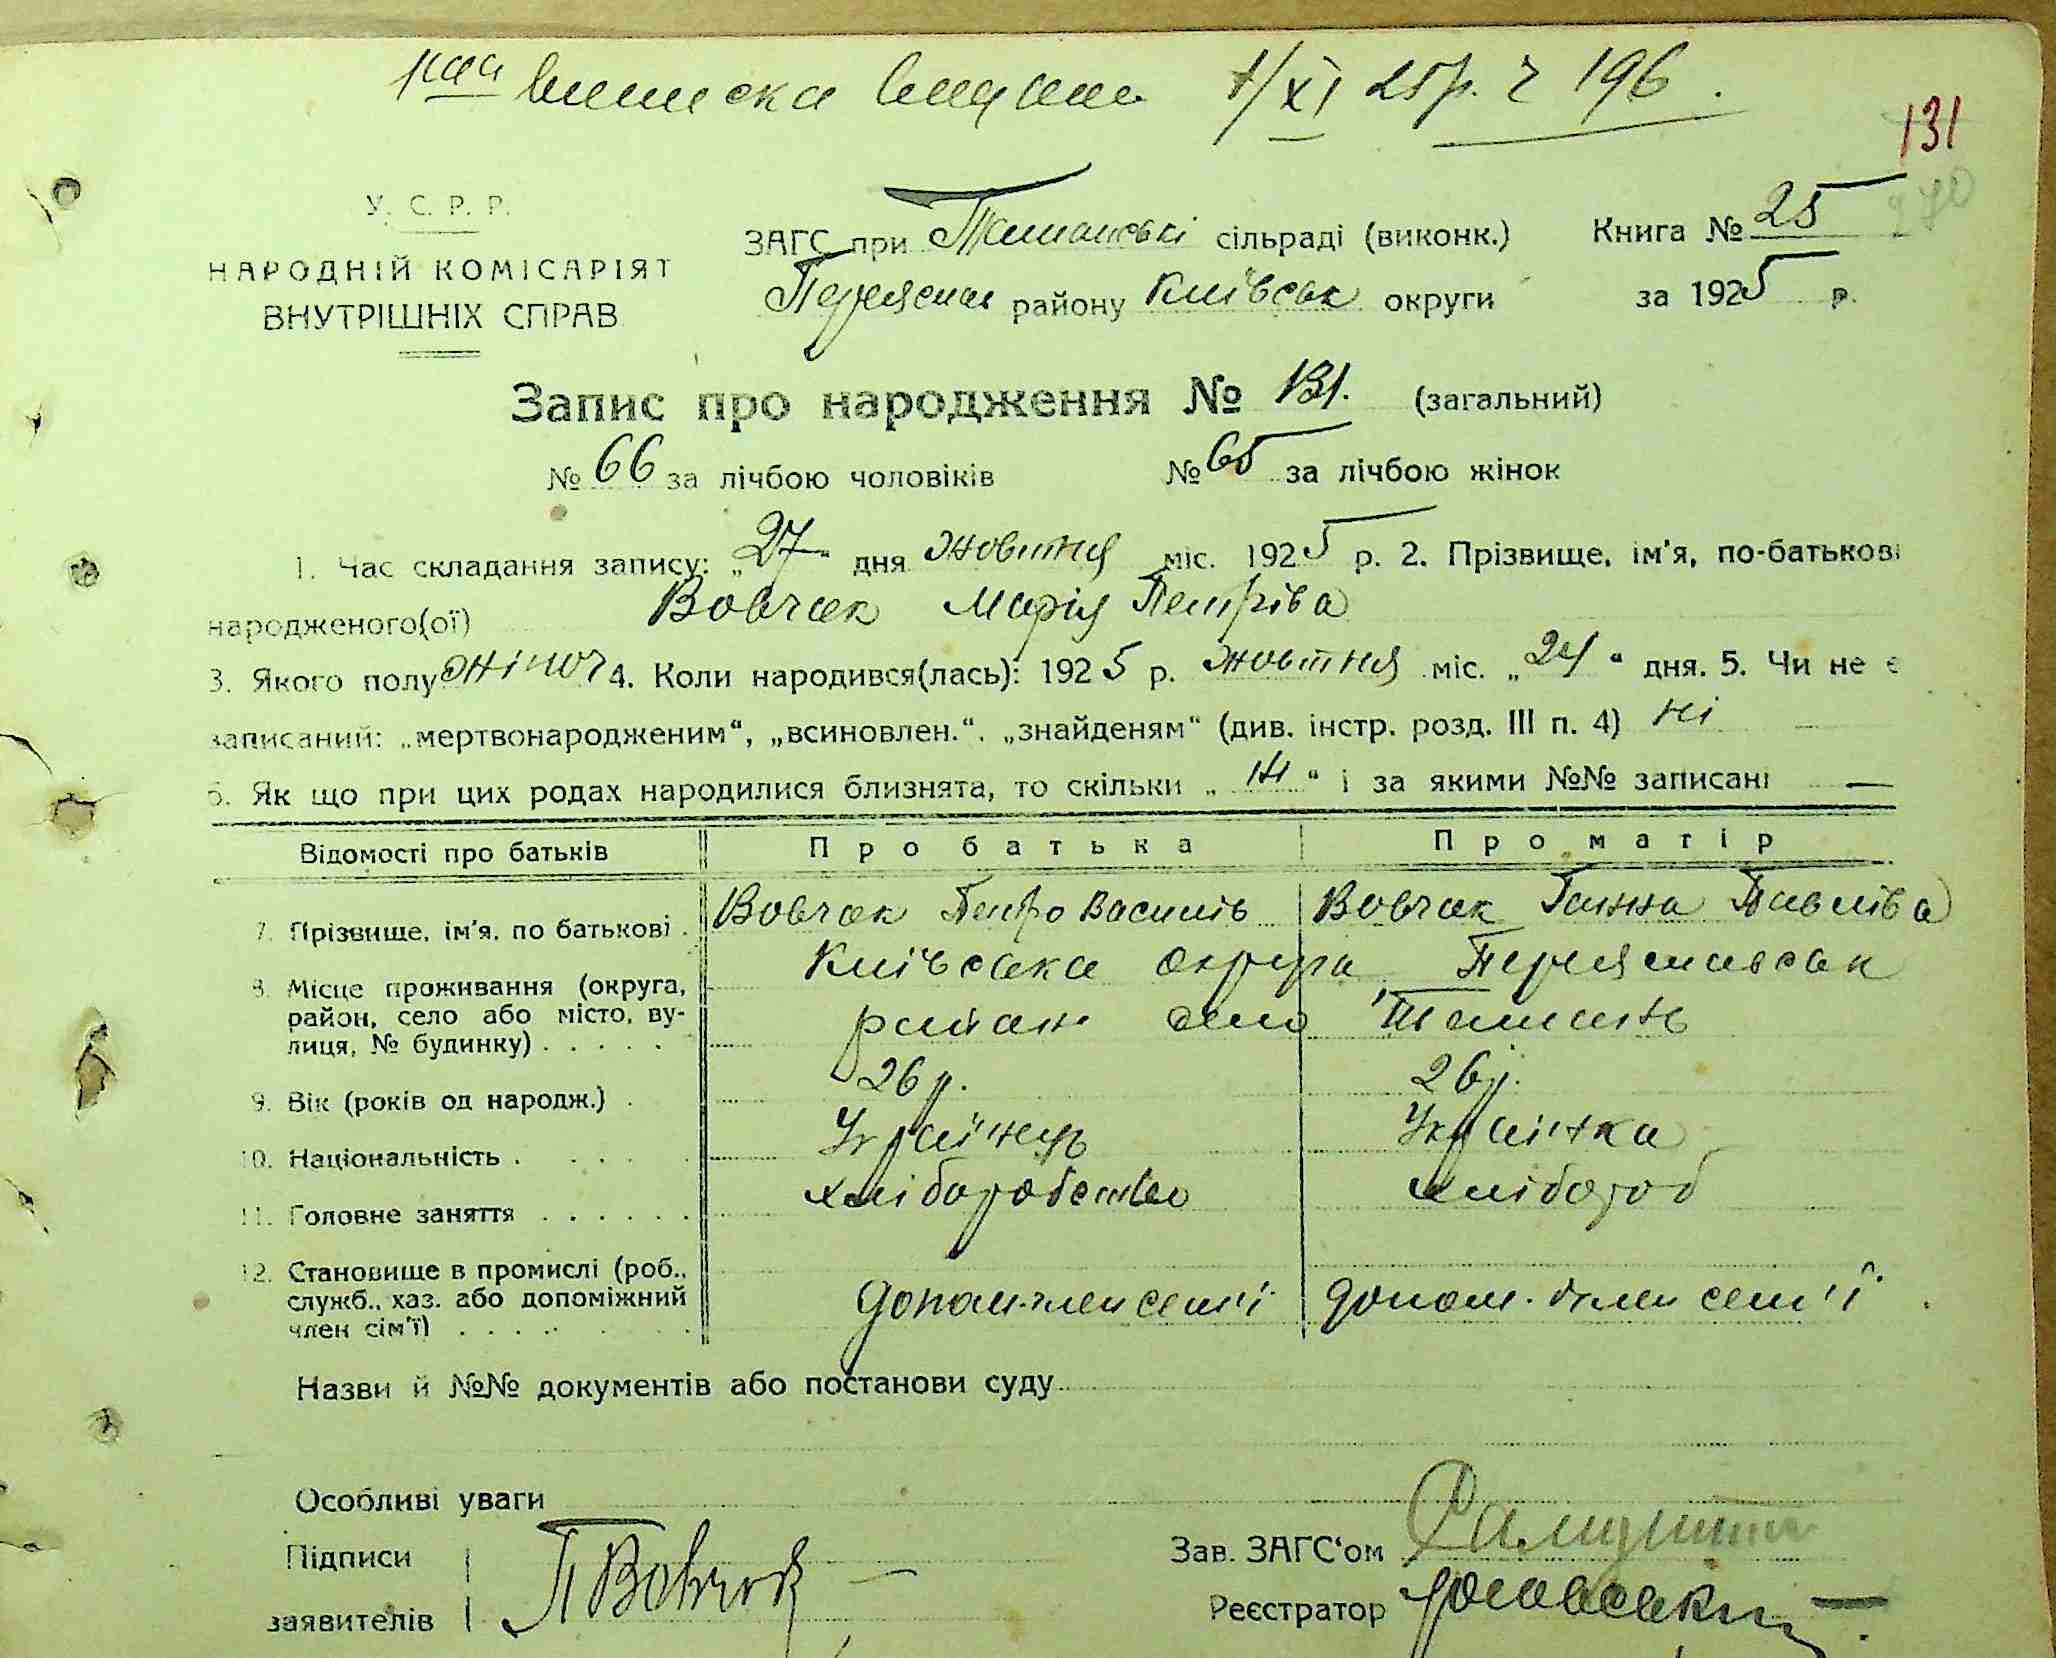 1ша виписка видана 7/XI 25р. ч 196.
131
У. С. Р. Р.
НАРОДНІЙ КОМІСАРІЯТ
ВНУТРІШНІХ СПРАВ
ЗАГС при Ташанські сільраді (виконк.) Книга № 25
Переяслав району Київськ округи за 1925 р.
Запис про народження № 131. (загальний)
№ 66 за лічбою чоловіків № 65 за лічбою жінок
1. Час складання запису: „27“ дня жовтня міс. 1925 р. 2. Прізвище, ім'я, по-батькові
народженого(ої) Вовчак Марія Петрівна
3. Якого полу жіноч 4. Коли народився(лась): 1925 р. жовтня міс. „24“ дня. 5. Чи не є
записаний: „мертвонародженим“, „всиновлен.“, „знайденям“ (див. інстр. розд. III п. 4) ні
6. Як що при цих родах народилися близнята, то скільки „ні“ і за якими №№ записані —
Відомості про батьків Про батька Про матір
7. Прізвище, ім'я, по батькові . Вовчак Петро Василів Вовчак Ганна Павлівна
8. Місце проживання (округа, район, село або місто, ву-
лиця, № будинку) . . . . . Київська округа Переяславськ
район село Ташань
9. Вік (років од народж.) . 26 р. 26 р.
10. Національність . . . . . Українець Українка
11. Головне заняття . . . . . . хліборобство хлібороб
12. Становище в промислі (роб.,
служб., хаз. або допоміжний
член сім'ї) . . . . . . допом. член сем'ї допом. член сем'ї
Назви й №№ документів або постанови суду
Особливі уваги
Підписи Зав. ЗАГС‘ом
заявителів П Вовчок Реєстратор